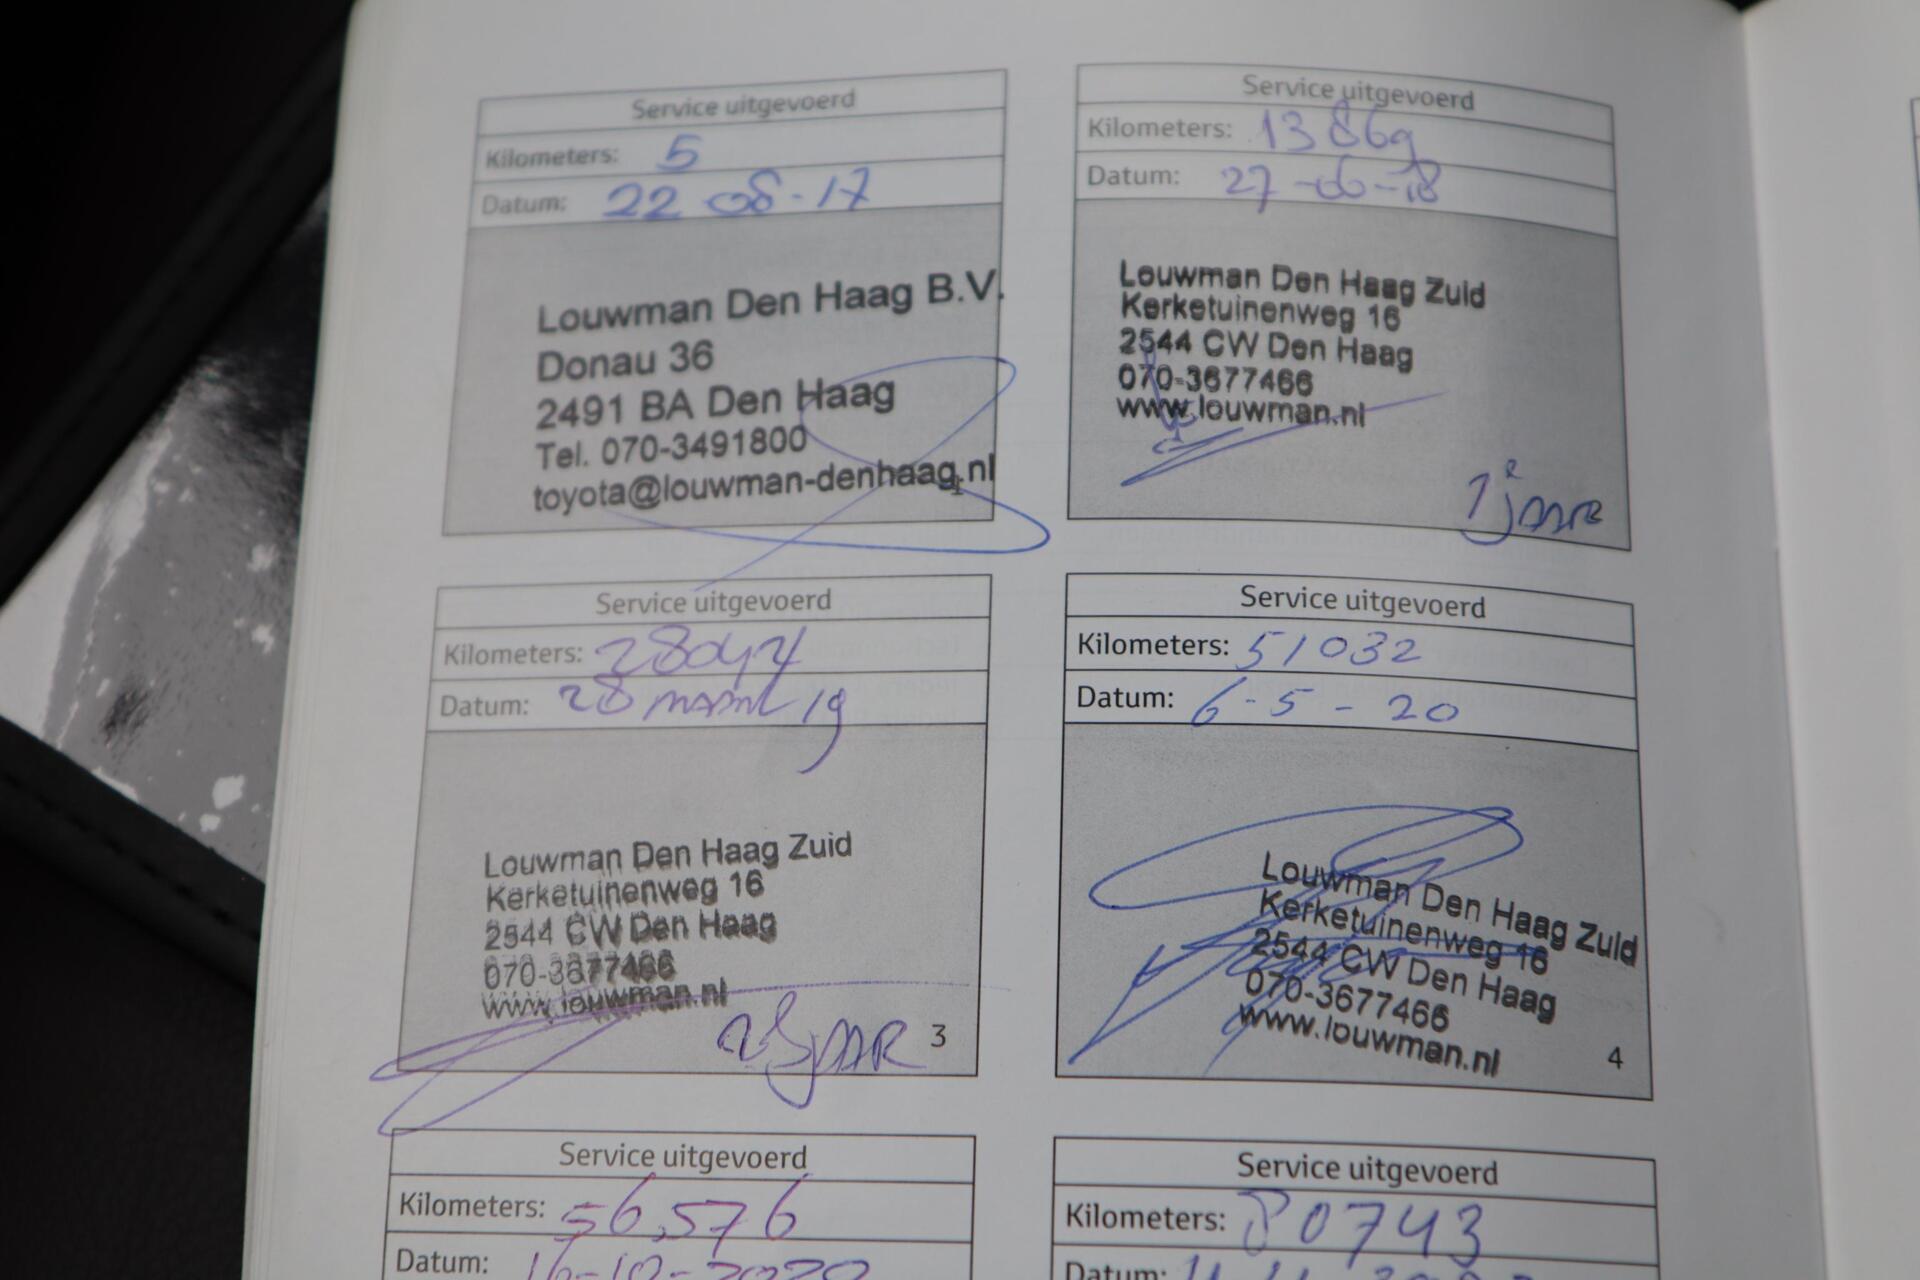 Service uitgevoerd
Kilometers: 5
Datum: 22-08-17
Louwman Den Haag B.V.
Donau 36
2491 BA Den Haag
Tel. 070-3491800
toyota@louwman-denhaag.nl
Service uitgevoerd
Kilometers: 13869
Datum: 27-06-18
Louwman Den Haag Zuid
Kerketuinenweg 16
2544 CW Den Haag
070-3677466
www.louwman.nl
1e jaar
Service uitgevoerd
Kilometers: 28044
Datum: 28 maart 19
Louwman Den Haag Zuid
Kerketuinenweg 16
2544 CW Den Haag
070-3677466
www.louwman.nl
jaar
3
Service uitgevoerd
Kilometers: 51032
Datum: 6-5-20
Louwman Den Haag Zuid
Kerketuinenweg 16
2544 CW Den Haag
070-3677466
www.louwman.nl
4
Service uitgevoerd
Kilometers: 56,576
Datum: 16-10-2020
Service uitgevoerd
Kilometers: 80743
Datum: